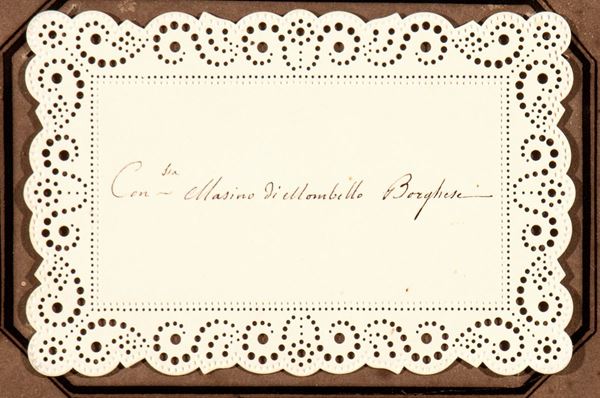 Con.ssa Masino di Mombello Borghese